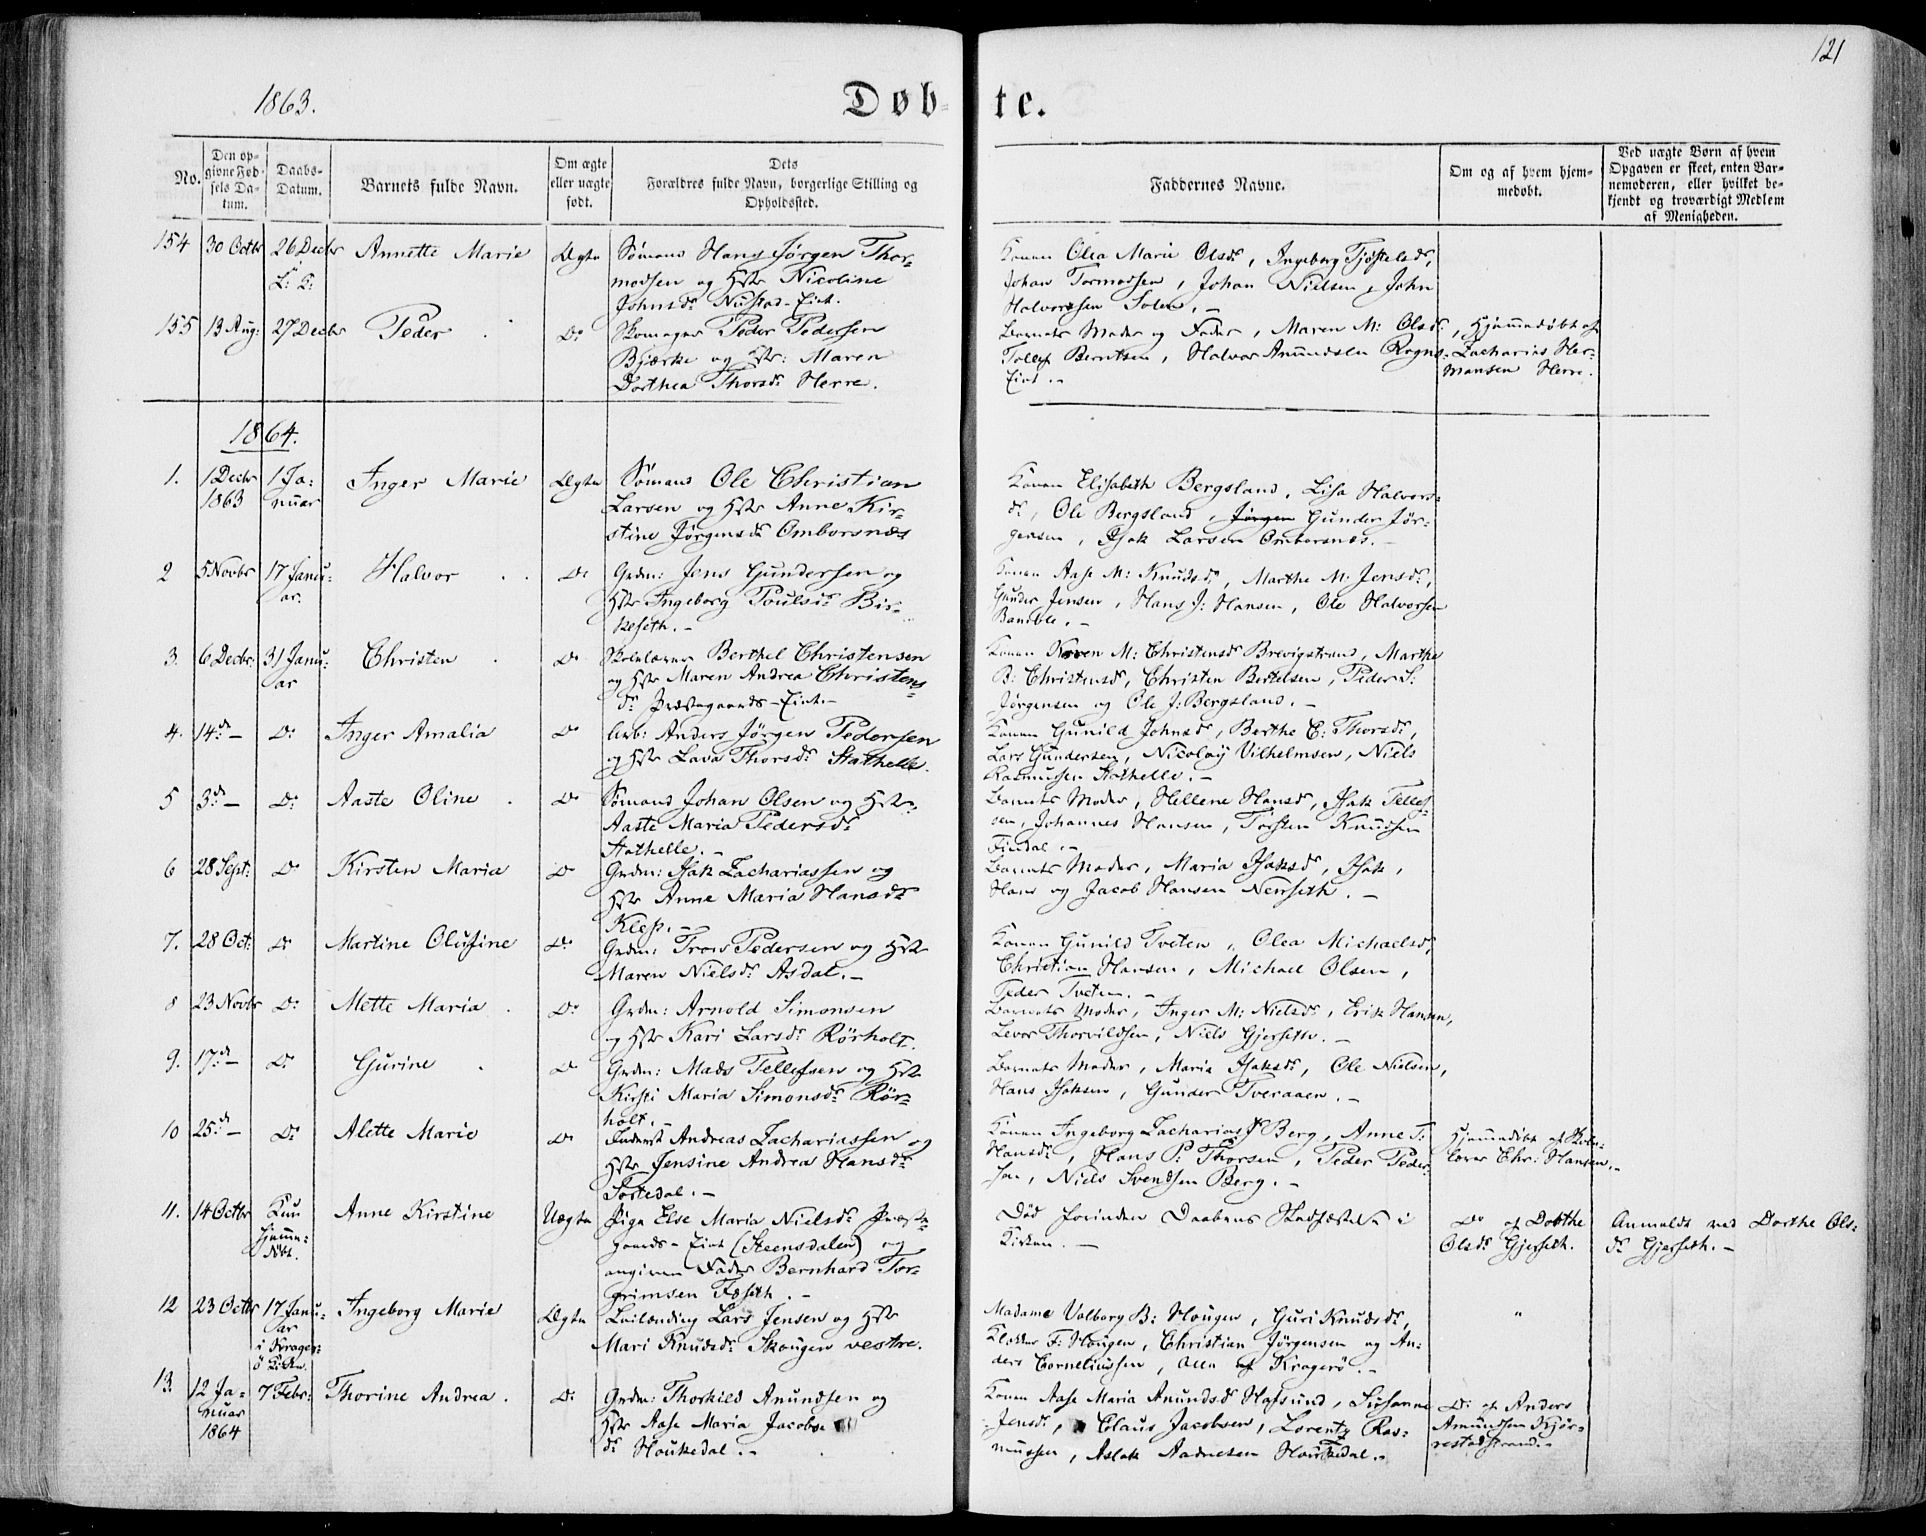 121
1863.
Døb-
te.
No.
Den op-
givne Fød-
sels Da-
tum.
Daabs-
Datum.
Barnets fulde Navn.
Om ægte
eller uægte
født.
Dets
Forældres fulde Navn, borgerlige Stilling og
Opholdssted.
Faddernes Navne.
Om og af hvem hjem-
medøbt.
Ved uægte Børn af hvem
Opgaven er skeet, enten Bar-
nemoderen, eller hvilket be-
kjendt og troværdigt Medlem
af Menigheden.
154 30 Octbr 26 Decbr Annette Marie Ægte Sømand Hans Jørgen Thor-
modsen og Hstr Nicoline
Johnsdr Nustad-Eiet.
Konen Olea Marie Olsdr, Ingeborg Tjøstelsdr,
Johan Tormodsen, Johan Nielsen, John
Halvorsen Solem.-
155 13 Aug: 27 Decbr Peder Do Skomager Peder Pedersen
Bjærke og Hstr: Maren
Dorthea Thorsdr Herre.
Barnets Moder og Fader, Maren M: Olsdr,
Tollef Berntsen, Halvor Amundsen Rogns-
Eiet.-
Hjemmedøbt af
Zacharias Her-
mansen Herre.
1864.
1. 1 Decbr
1863
1 Ja-
nuar
Inger Marie Ægte Sømand Ole Christian
Larsen og Hstr Anne Kir-
stine Jørgensdr Omborsnæs
Konen Elisabeth Bergsland, Lisa Halvors-
dr, Ole Bergsland, Jørgen Gunder Jør-
gensen, Isak Larsen Omborsnæs.-
2 5 Novbr 17 Janu-
ar.
Halvor Do Grdm: Jens Gundersen og
Hstr Ingeborg Poulsdr Bir-
keseth.-
Konen Aase M: Knudsdr, Marthe M: Jensdr,
Gunder Jensen, Hans J: Hansen, Ole Halvorsen
Bamble.-
3. 6 Decbr: 31 Janu-
ar
Christen Do Skolelærer Berthel Christensen
og Hstr Maren Andrea Christens-
dr Præstegaards-Eiet.-
Konen Karen M: Christensdr Brevigstrand, Marthe
B: Christensdr, Christen Bertelsen, Peder S:
Jørgensen og Ole J: Bergsland.-
4. 14 d- Do Inger Amalia Do Arb: Anders Jørgen Pedersen
og Hstr Lava Thorsdr Stathelle.
Konen Gunild Johnsdr, Berthe E: Thorsdr,
Lars Gundersen, Nicolay Vilhelmsen, Niels
Rasmussen Stathelle.-
5 3 d- Do Aaste Oline Do Sømand Johan Olsen og Hstr
Aaste Maria Pedersdr
Stathelle.-
Barnets Moder, Hellene Hansdr, Isak Tellef-
sen, Johannes Hansen, Torsten Knudsen
Findal.-
6 28 Sept: Do Kirsten Maria Do Grdm: Isak Zachariassen og
Hstr Anne Maria Hansdr
Klep.-
Barnets Moder, Maria Isaksdr, Isak,
Hans og Jacob Hansen Nenseth.-
7. 28 Oct: Do Martine Olufine Do Grdm: Trols Pedersen og Hstr
Maren Nielsdr Asdal.-
Konen Gunild Tveten, Olea Michaelsdr
Christian Hansen, Michael Olsen,
Peder Tveten.-
8 23 Novbr Do Mette Maria Do Grdm: Arnold Simonsen
og Hstr Kari Larsdr Rørholt.
Barnets Moder, Inger M: Nielsdr, Erik Hansen,
Levor Thorvildsen, Niels Gjerseth.-
9. 17 d- Do Gurine Do Grdm: Mads Tellefsen og Hstr
Kirsti Maria Simonsdr Rør-
holt.-
Barnets Moder, Maria Isaksdr, Ole Nielsen,
Hans Isaksen, Gunder Tveraaen.-
10 25 d- Do Alette Marie Do Inderst Andreas Zachariassen og
Hstr Jensine Andrea Hansdr
Tostedal.-
Konen Ingeborg Zachariasdr Berg, Anne T:
Hansdr, Hans P: Thorsen, Peder Peder-
sen, Niels Svendsen Berg.-
Hjemmedøbt af Skole-
lærer Chr: Hansen.-
11. 14 Octbr Kun
hjemme-
døbt.
Anne Kirstine Uægte Pige Else Maria Nielsdr Præste-
gaards-Eiet (Steensdalen) og
angiven Fader Bernhard Tor-
grimsen Foseth.-
Død forinden Daabens Stadfæstelse i
Kirken.-
Do af Dorthe
Olsdr Gjerseth.
Anmeldt ved Dorthe Ols-
dr Gjerseth.-
12 23 Octbr 17 Janu-
ar
i Krager-
ö Kirke.
Ingeborg Marie Ægte Leilænding Lars Jensen og Hstr
Mari Knudsdr Skougen vestre.
Madame Valborg B: Hougen, Guri Knudsdr,
Klokker F: Hougen, Christian Jörgensen og An-
ders Corneliussen, Alle af Kragerö.-
"
13. 12 Ja-
nuar
1864
7 Febr: Thorine Andrea. Do Grdm: Thorkild Amundsen og
Hstr Aase Maria Jacobs-
dr Houkedal.-
Konen Aase Maria Amundsdr Hafsund, Susanne
Jensdr, Claus Jacobsen, Lorentz Ras-
mussen, Aslak Aadnesen Houkedal.-
Do af Anders
Amundsen Kjør-
restadstrand.-